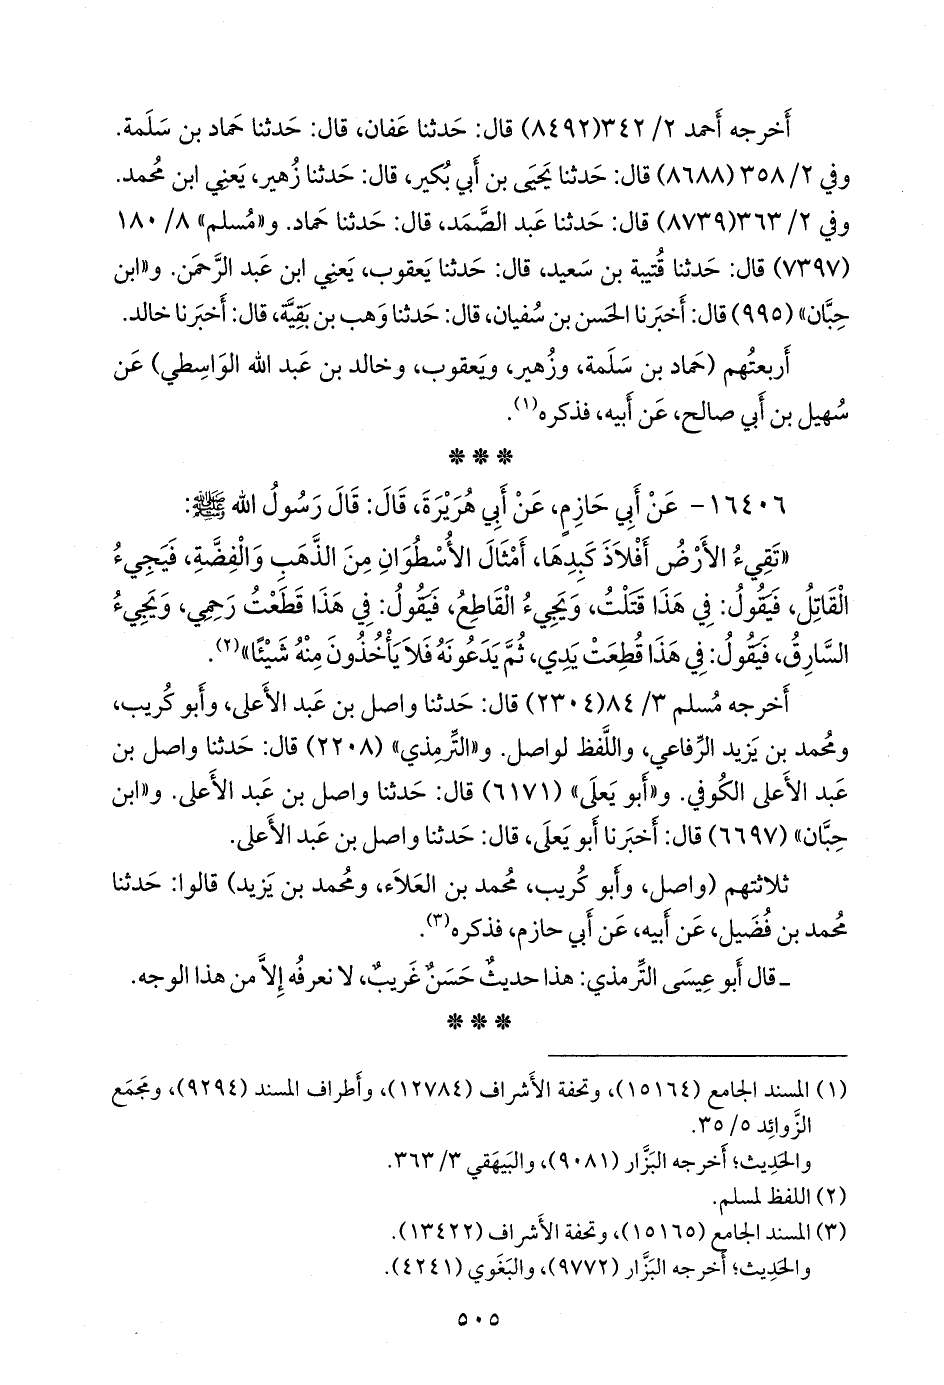 أَخرجه أَحمد ٢/ ٣٤٢(٨٤٩٢) قال: حَدثنا عَفان، قال: حَدثنا حَماد بن سَلَمة.
وفي ٢/ ٣٥٨ (٨٦٨٨) قال: حَدثنا يَحيَى بن أَبي بُكير، قال: حَدثنا زُهير، يَعني ابن مُحمد.
وفي ٢/ ٣٦٣(٨٧٣٩) قال: حَدثنا عَبد الصَّمَد، قال: حَدثنا حَماد. و«مُسلم» ٨/ ١٨٠
(٧٣٩٧) قال: حَدثنا قُتيبة بن سَعيد، قال: حَدثنا يَعقوب، يَعني ابن عَبد الرَّحمَن. و«ابن
حِبَّان» (٩٩٥) قال: أَخبَرنا الحَسن بن سُفيان، قال: حَدثنا وَهب بن بَقِيَّة، قال: أَخبَرنا خالد.
أَربعتُهم (حَماد بن سَلَمة، وزُهير، ويَعقوب، وخالد بن عَبد الله الوَاسِطي) عَن
سُهيل بن أَبي صالح، عَن أَبيه، فذكره(١).
* * *
١٦٤٠٦- عَنْ أَبِي حَازِمٍ، عَنْ أَبِي هُرَيْرَةَ، قَالَ: قَالَ رَسُولُ الله ﷺ:
«تَقِيءُ الأَرْضُ أَفْلاَذَ كَبِدِهَا، أَمْثَالَ الأُسْطُوَانِ مِنَ الذَّهَبِ وَالْفِضَّةِ، فَيَجِيءُ
الْقَاتِلُ، فَيَقُولُ: فِي هَذَا قَتَلْتُ، وَيَجِيءُ الْقَاطِعُ، فَيَقُولُ: فِي هَذَا قَطَعْتُ رَحِمِي، وَيَجِيءُ
السَّارِقُ، فَيَقُولُ: فِي هَذَا قُطِعَتْ يَدِي، ثُمَّ يَدَعُونَهُ فَلاَ يَأْخُذُونَ مِنْهُ شَيْئًا»(٢).
أَخرجه مُسلم ٣/ ٨٤(٢٣٠٤) قال: حَدثنا واصل بن عَبد الأَعلى، وأَبو كُريب،
ومُحمد بن يَزيد الرِّفاعي، واللَّفظ لواصل. و«التِّرمِذي» (٢٢٠٨) قال: حَدثنا واصل بن
عَبد الأَعلى الكُوفي. و«أَبو يَعلَى» (٦١٧١) قال: حَدثنا واصل بن عَبد الأَعلى. و«ابن
حِبَّان» (٦٦٩٧) قال: أَخبَرنا أَبو يَعلَى، قال: حَدثنا واصل بن عَبد الأَعلى.
ثلاثتهم (واصل، وأَبو كُريب، مُحمد بن العَلاَء، ومُحمد بن يَزيد) قالوا: حَدثنا
مُحمد بن فُضَيل، عَن أَبيه، عَن أَبي حازم، فذكره(٣).
ـ قال أَبو عِيسَى التِّرمِذي: هذا حديثٌ حَسَنٌ غَريبٌ، لا نعرفُه إِلاَّ من هذا الوجه.
* * *
(١) المسند الجامع (١٥١٦٤)، وتحفة الأَشراف (١٢٧٨٤)، وأَطراف المسند (٩٢٩٤)، ومَجمَع
الزَّوائِد ٥/ ٣٥.
والحَدِيث؛ أَخرجه البَزَّار (٩٠٨١)، والبَيهَقي ٣/ ٣٦٣.
(٢) اللفظ لمسلم.
(٣) المسند الجامع (١٥١٦٥)، وتحفة الأَشراف (١٣٤٢٢).
والحَدِيث؛ أَخرجه البَزَّار (٩٧٧٢)، والبَغَوي (٤٢٤١).
٥٠٥